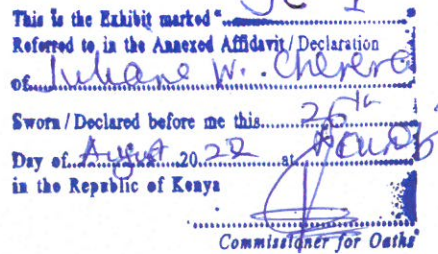 This is the Exhibit marked "
Referred to in the Annexed Affidavit/Declaration
of Juliane W. Cherera
Sworn/Declared before me this 26th
Day of August 20 22 at
in the Republic of Kenya
Commissioner for Oaths